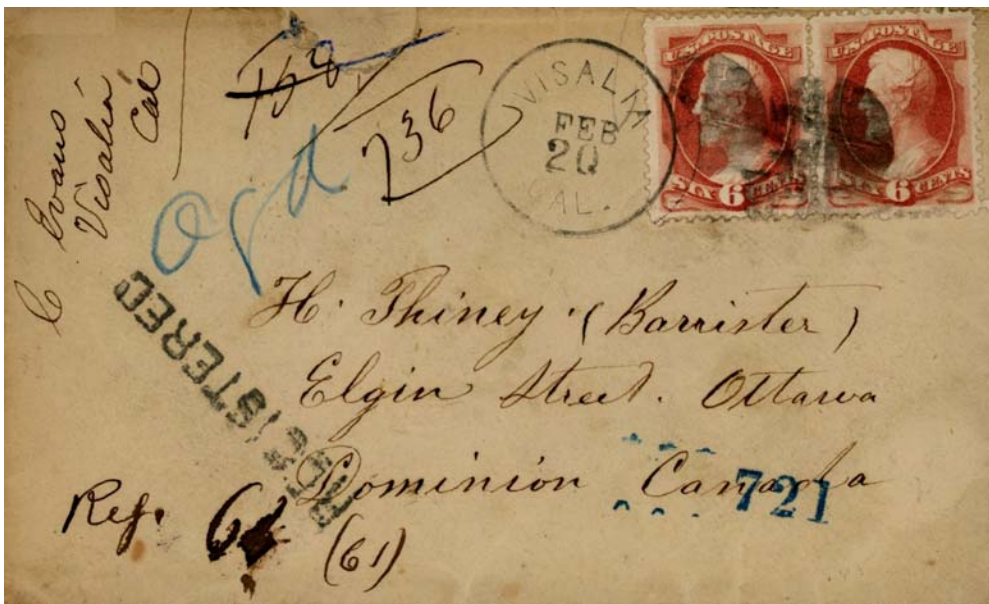 C Evans
Visalia
Cal
158
236
VISALIA
FEB
20
CAL.
U.S. POSTAGE
SIX 6 CENTS
U.S. POSTAGE
SIX 6 CENTS
REGISTERED
H. Thiney (Barrister)
Elgin Street. Ottawa
Dominion Canada
721
Reg. 61
(61)